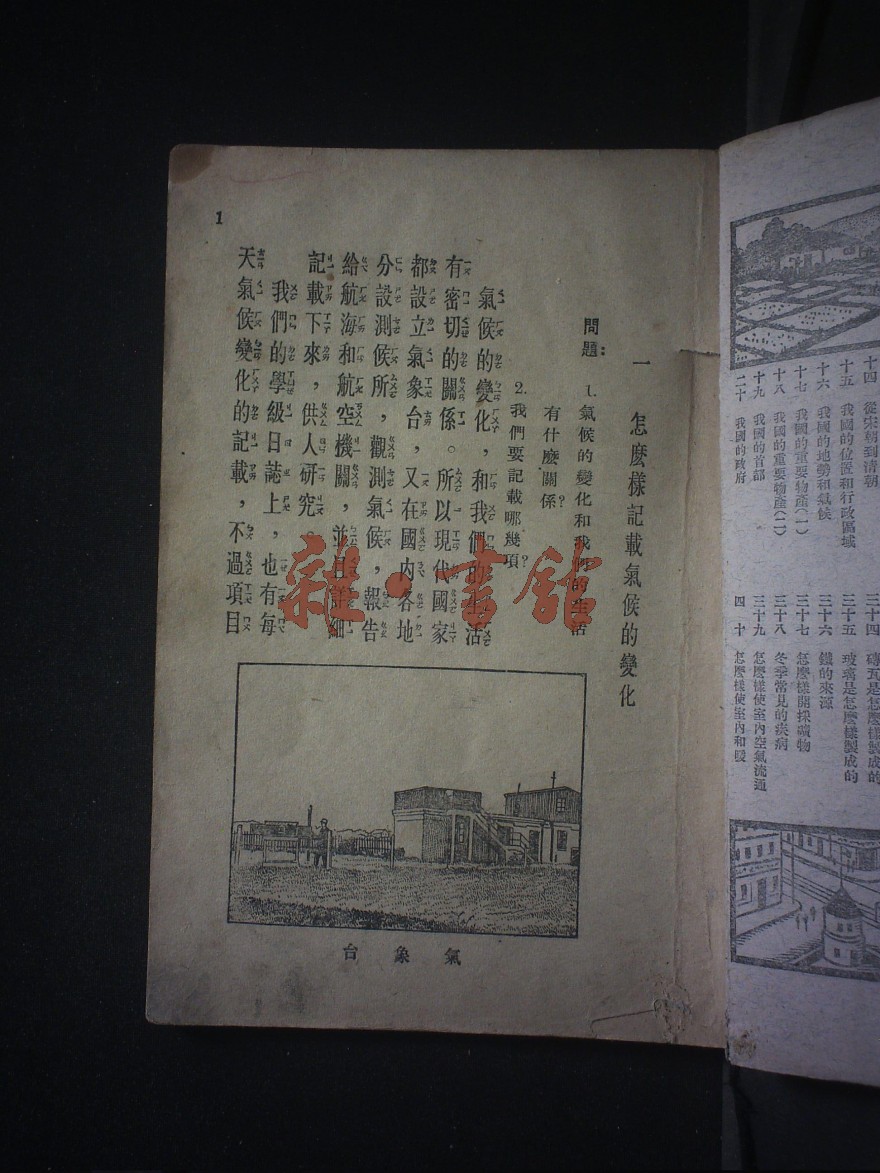 一 怎麽樣記載氣候的變化
問題：1. 氣候的變化和我們的生活
有什麽關係？
2. 我們要記載哪幾項？
氣候的變化，和我們的生活
有密切的關係。所以現代國家
都設立氣象台，又在國內各地
分設測候所，觀測氣候，報告
給航海和航空機關，並且詳細
記載下來，供人研究。
我們的學級日誌上，也有每
天氣候變化的記載，不過項目
氣象台
1
雜·書館
十四 從宋朝到清朝
十五 我國的位置和行政區域
十六 我國的地勢和氣候
十七 我國的重要物產(一)
十八 我國的重要物產(二)
十九 我國的首都
二十 我國的政府
三十四 磚瓦是怎麽樣製成的
三十五 玻璃是怎麽樣製成的
三十六 鐵的來源
三十七 怎麽樣開採礦物
三十八 冬季常見的疾病
三十九 怎麽樣使室內空氣流通
四十 怎麽樣使室內和暖